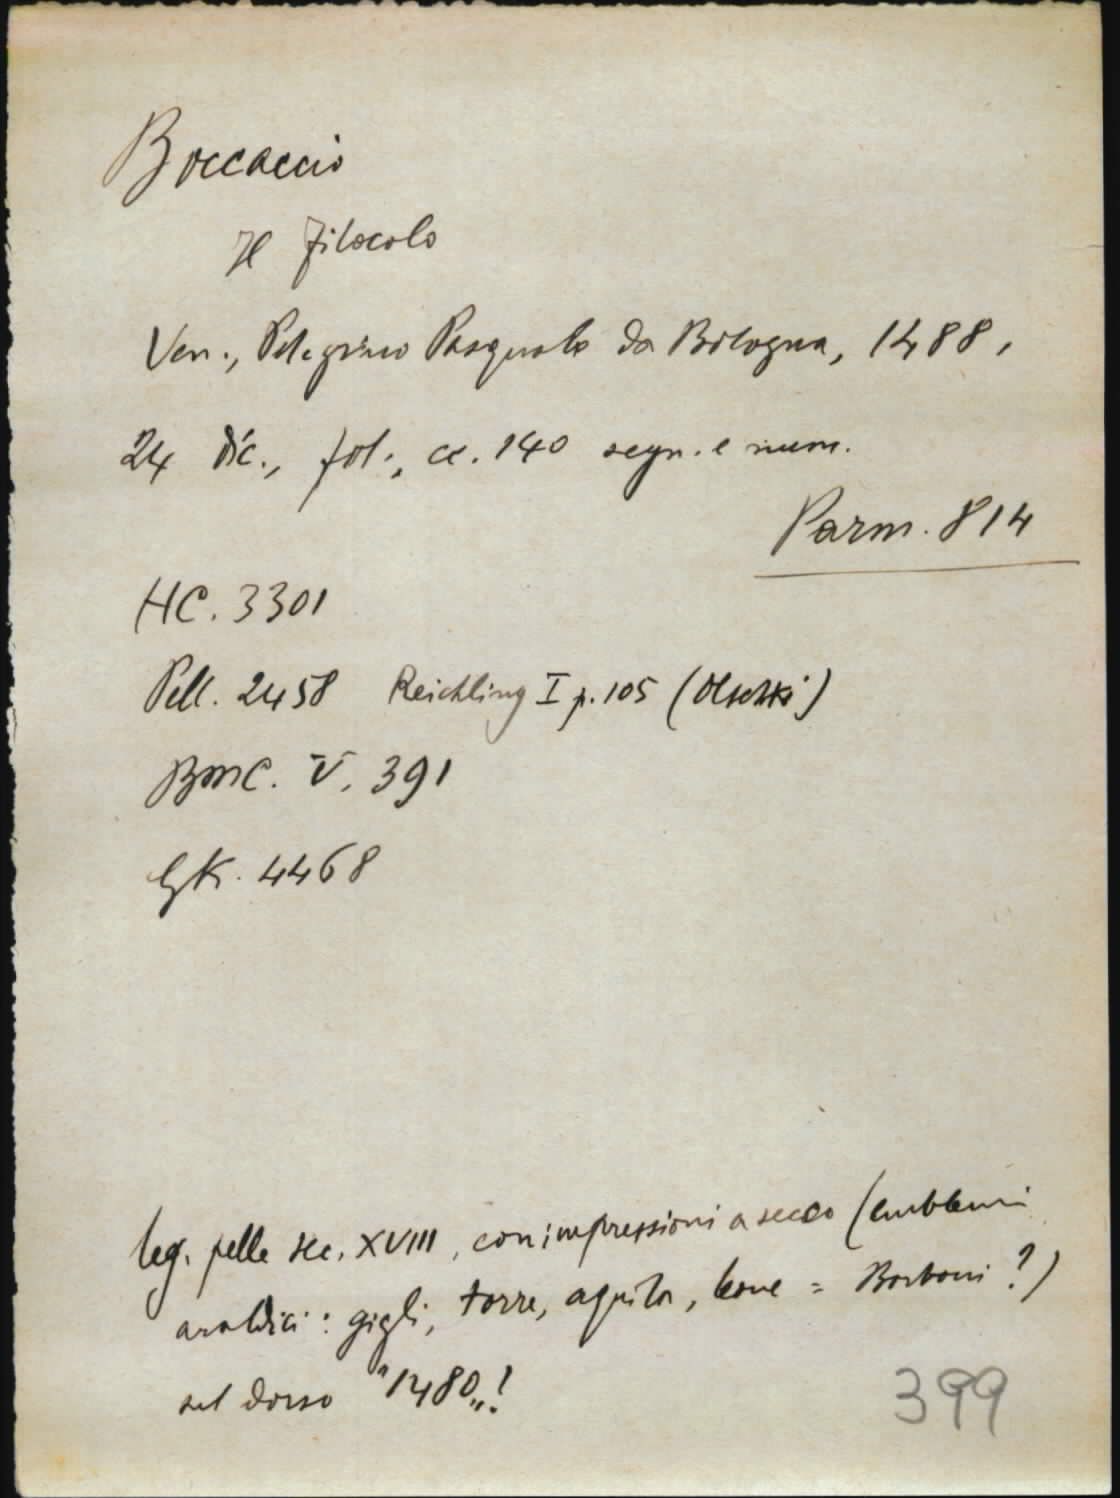 Boccaccio
Il Filocolo
Ven., Pelegrino Pasquale da Bologna, 1488,
24 dic., fol., cc. 140 segn. e num.
Parm. 814
HC. 3301
Pell. 2458 Reichling I p. 105 (Olschki)
BMC. V, 391
GK. 4468
leg. pelle sec. XVIII, con impressioni a secco (emblemi
araldici: gigli, torre, aquila, leone = Borboni?)
sul dorso "1480„!
399